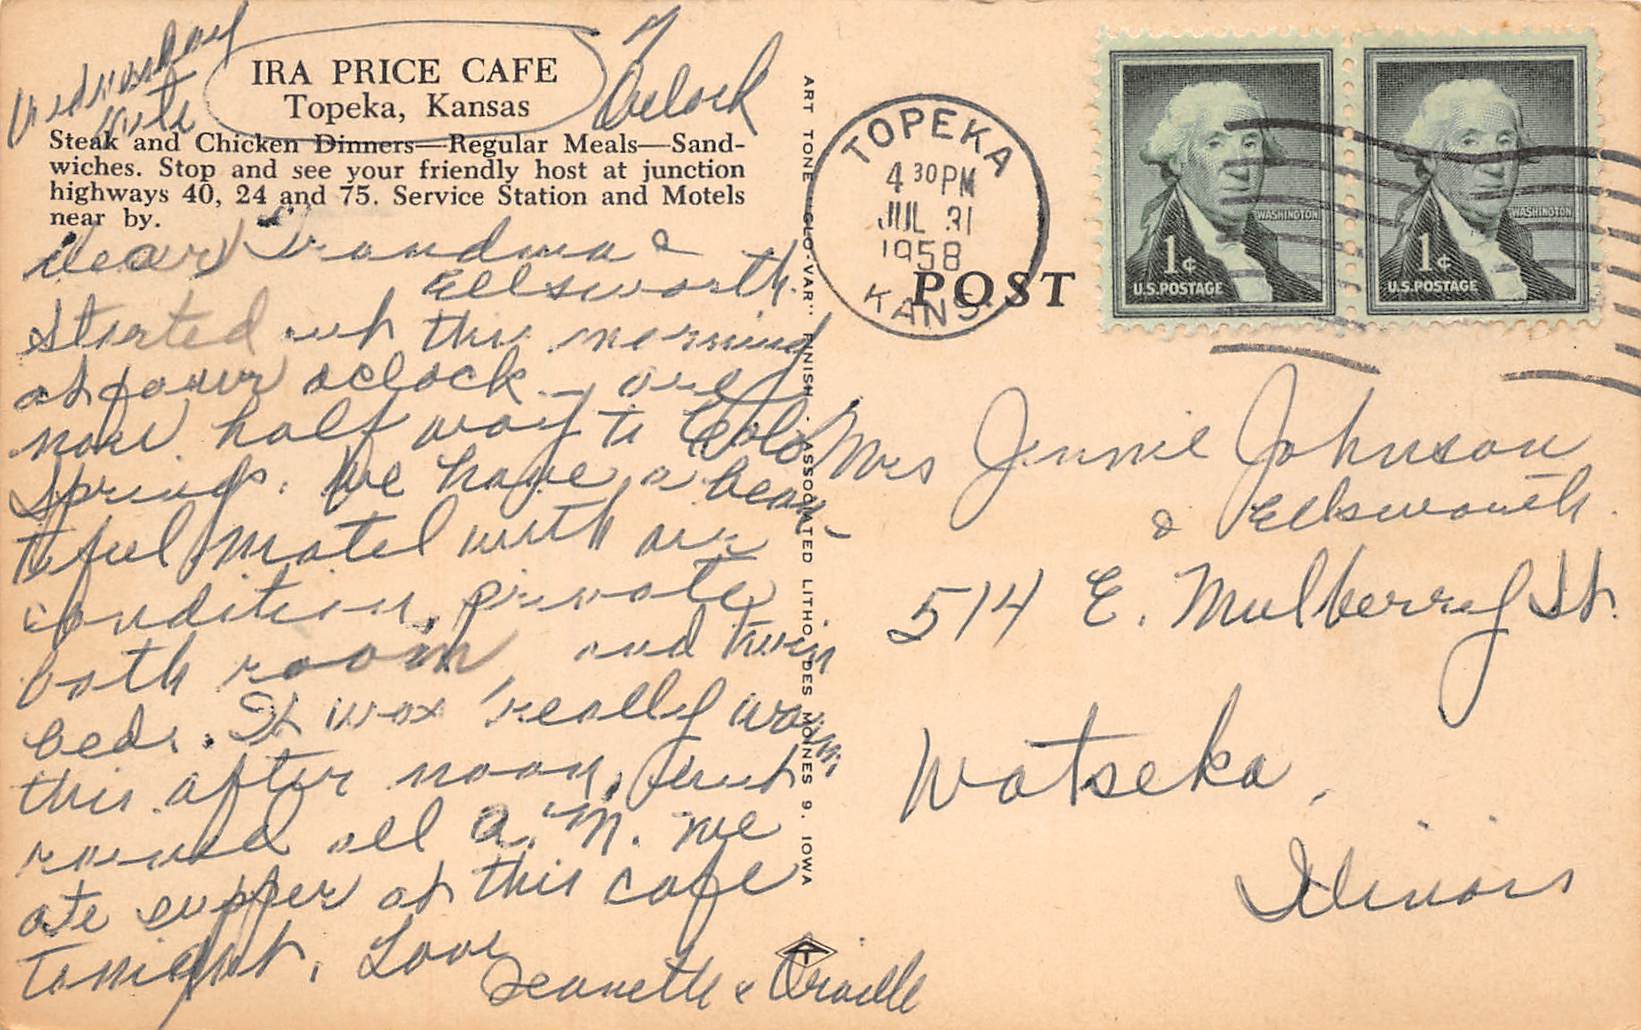 Wednesday
nite
7
Oclock
IRA PRICE CAFE
Topeka, Kansas
Steak and Chicken Dinners—Regular Meals—Sand-
wiches. Stop and see your friendly host at junction
highways 40, 24 and 75. Service Station and Motels
near by.
Dear Grandma &
Ellsworth.
Started out this morning
at four oclock - are
now half way to Colo
Springs. We have a beau-
tiful Motel with air
condition, private
bath room and twin
beds. It was really warm
this after noon, but
rained all A.M. We
ate supper at this cafe
tonight. Love
Jeanette & Orville
ART TONE "GLO-VAR" FINISH ASSOCIATED LITHO. DES MOINES 9. IOWA
TOPEKA
4 30 PM
JUL 31
1958
KANS.
POST
WASHINGTON
1¢
U.S. POSTAGE
WASHINGTON
1¢
U.S. POSTAGE
Mrs Jennie Johnson
& Ellsworth.
514 E. Mulberry St.
Watseka,
Illinois